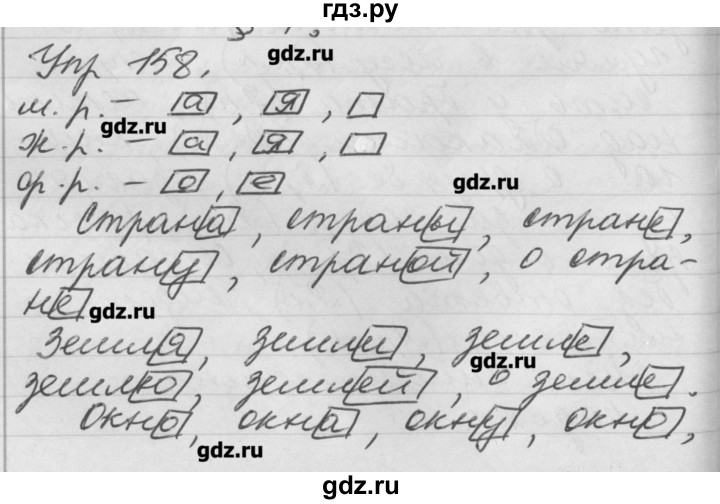 гдз.ру
Упр 158.
gdz.ru
м. р. – а, я,
gdz.ru
ж. р. – а, я,
ф. р. – о, е
gdz.ru
страна, страны, стране,
страну, страной, о стра-
не
gdz.ru
Земля, земли, земле,
gdz.ru
землю, землей, о земле.
Окно, окна, окну, окно,
gdz.ru
gdz.ru